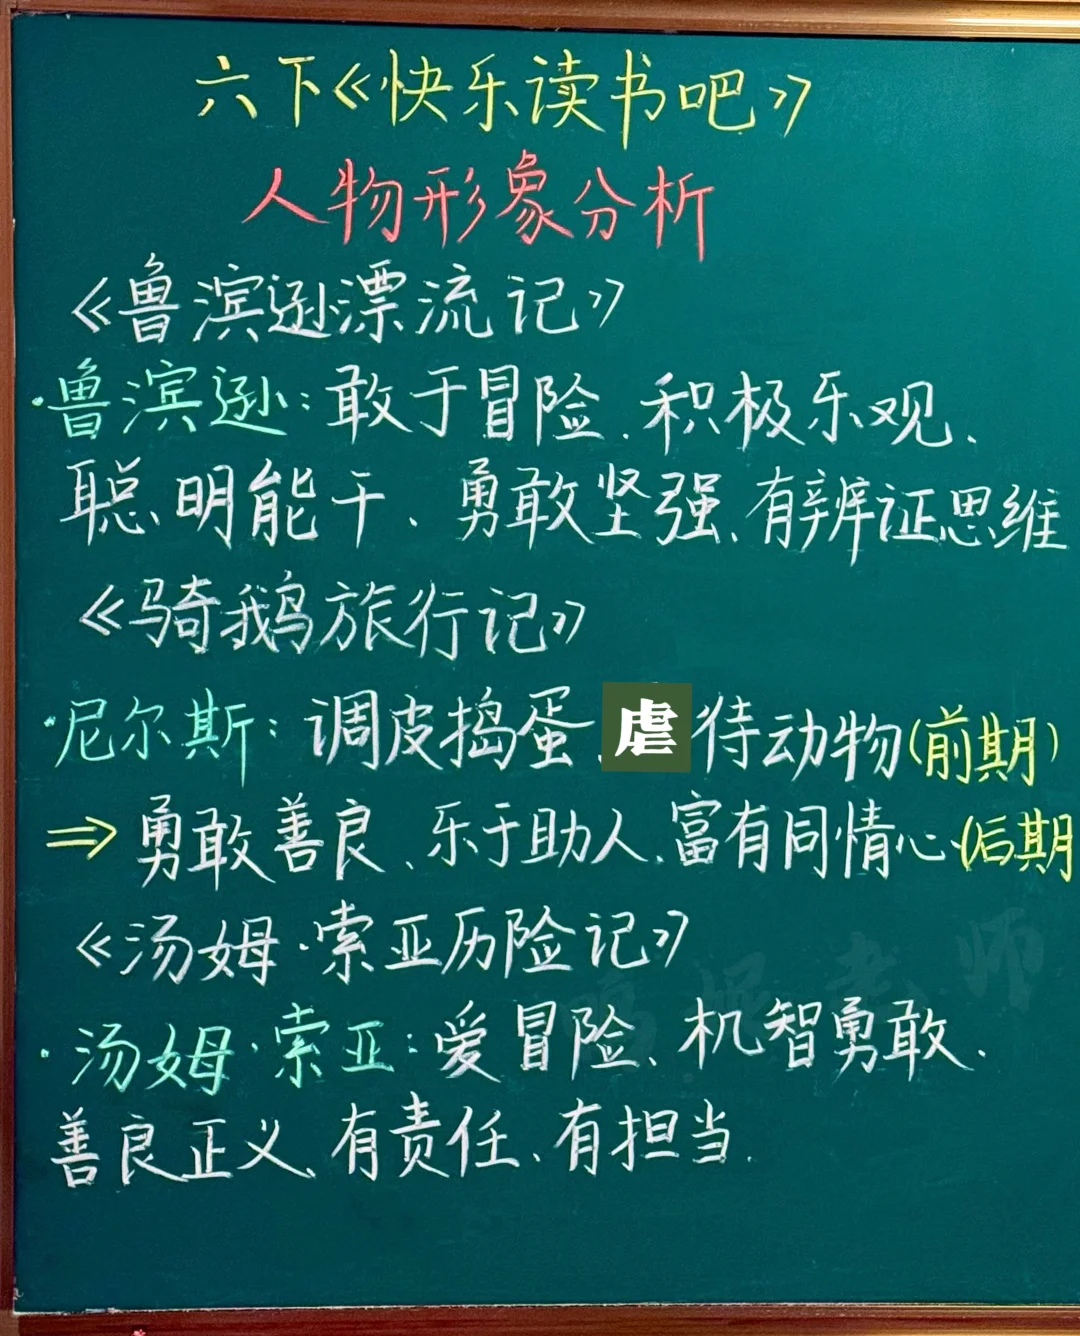 六下《快乐读书吧》
人物形象分析
《鲁滨逊漂流记》
·鲁滨逊：敢于冒险、积极乐观、
聪明能干、勇敢坚强、有辨证思维
《骑鹅旅行记》
·尼尔斯：调皮捣蛋、虐待动物(前期)
⇒勇敢善良、乐于助人、富有同情心(后期
《汤姆·索亚历险记》
·汤姆·索亚：爱冒险、机智勇敢、
善良正义、有责任、有担当.